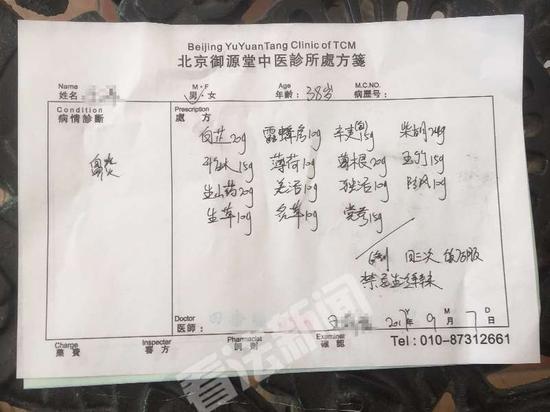 Beijing YuYuanTang Clinic of TCM
北京御源堂中医診所處方箋
Name M·F Age M.C.NO.
姓名: 男·女 年齡: 38岁 病歷号:
Condition Prescription
病情診斷 處方
白芷20g 露蜂房10g 15g 柴胡24g
15g 薄荷10g 20g 玉竹15g
生山药20g 羌活10g 独活10g 防风10g
生草10g 10g 党参15g
日三次 饭后服
禁忌生辣
Doctor Y M D
醫師: 2017年9月7日
Charge Inspecter Pharmacist Examiner
藥費 審方 調劑 確認
Tel: 010-87312661
看法新闻